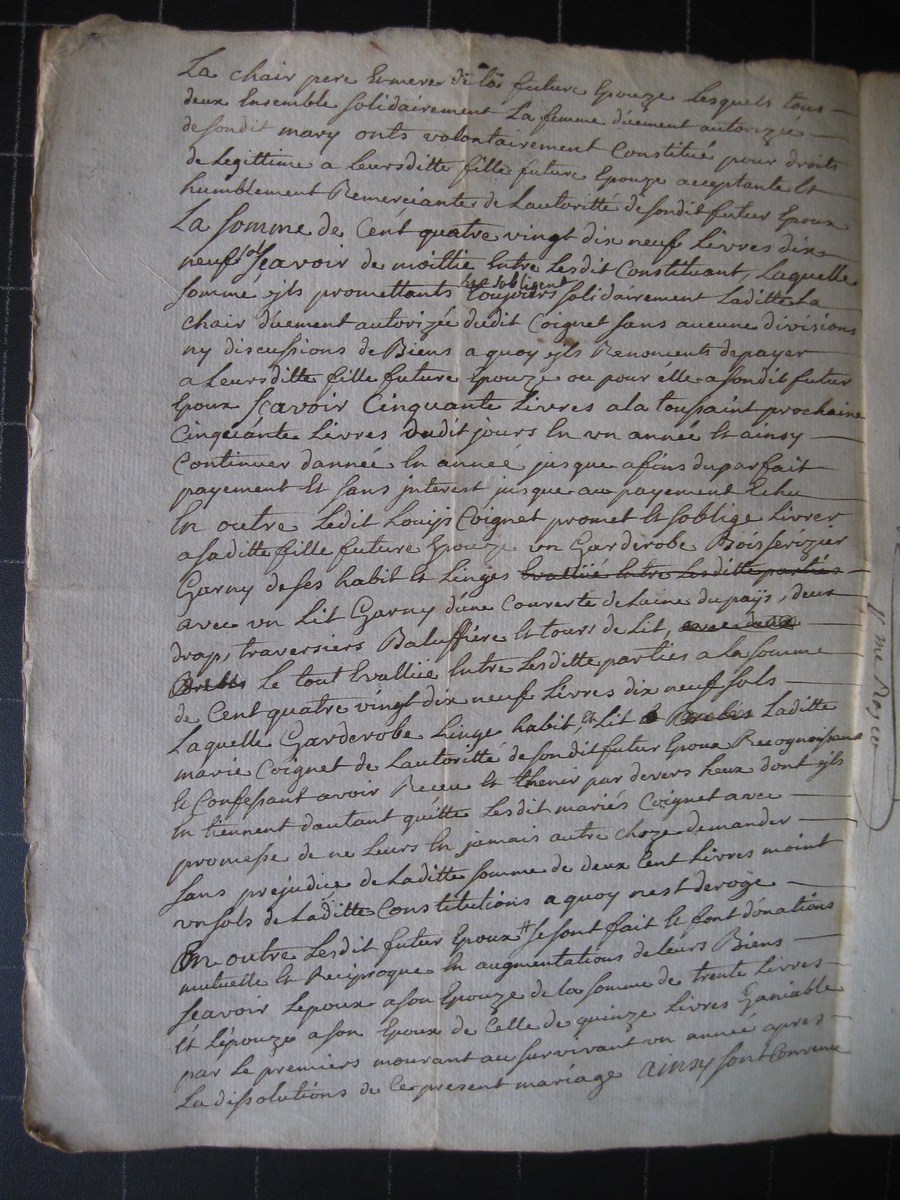 La chair pere Et mere de la future Epouze Lesquels tous
deux Ensemble solidairement La femme düement autorizée
de sondit mary onts volontairement Constitué pour droits
de Legittime a Leursditte fille future Epouze acceptante Et
humblement Remerciante de Lautoritté de sondit futur Epoux
La somme de Cent quatre vingt dix neuf Livres dix
neuf sols scavoir de moittie Entre Lesdit Constituant, Laquelle
somme yls promettants et sobligent toujours solidairement Laditte La
chair düement autorizée dudit Coignet sans aucune divisions
ny discussions de Biens a quoy yls Renoncents de payer
a Leursditte fille future Epouze ou pour élle a sondit futur
Epoux Scavoir Cinquante Livres a la toussaint prochaine
Cinquante Livres dudit jours En un année Et ainsy
Continuer dannée En année jusque a fins du parfait
payement Et sans interest jusque au payement Echu
En outre Ledit Louys Coignet promet Et soblige Livrer
a saditte fille future Epouze un Garderobe Boisserizier
Garny de ses habit Et Linges Evallüé Entre Lesditte parties
avec un Lit Garny d'une Couverte de Laine du pays, deux
drap, traversiers Baluffiere Et tours de Lit, avec deux
Brebis Le tout Evallüe Entre Lesditte parties a La somme
de Cent quatre vingt dix neuf Livres dix neuf sols
Laquelle Garderobe Linge habit, et Lit Brebis Laditte
marie Coignet de Lautoritté de sondit futur Epoux Recognoissant
Et Confessant avoir Receu Et thenir par devers heux dont yls
En tiennent dautant quitte Lesdit mariés Coignet avec
promesse de ne Leurs En jamais autre choze demander
sans prejudice de Laditte somme de deux Cent Livres moint
un sols de Laditte Constitutions a quoy n'est deroge
En outre Lesdit futur Epoux se sont fait Et font donations
mutuelle Et Reciproque En augmentations de Leurs Biens
scavoir Lepoux a son Epouze de la somme de trente Livres
Et Lépouze a son Epoux de Celle de quinze Livres Ganiable
par Le premiers mourant au survivant un année apres
La dissolutions de Ce present mariage ainsy sont Convenu